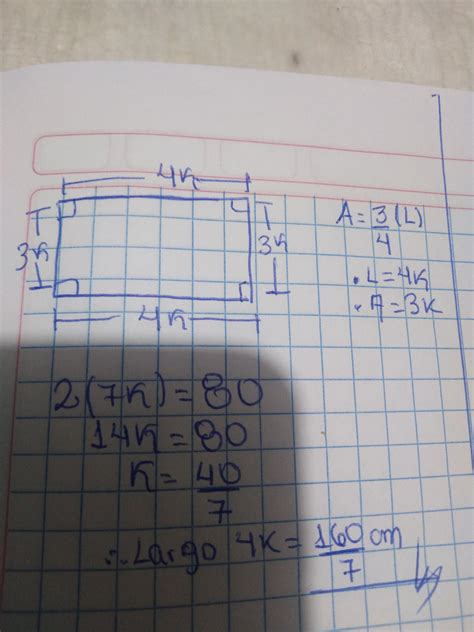 4K
3K
3K
4K
A = 3/4 (L)
. L = 4K
. A = 3K
2(7K) = 80
14K = 80
K = 40/7
∴ Largo 4K = 160/7 cm